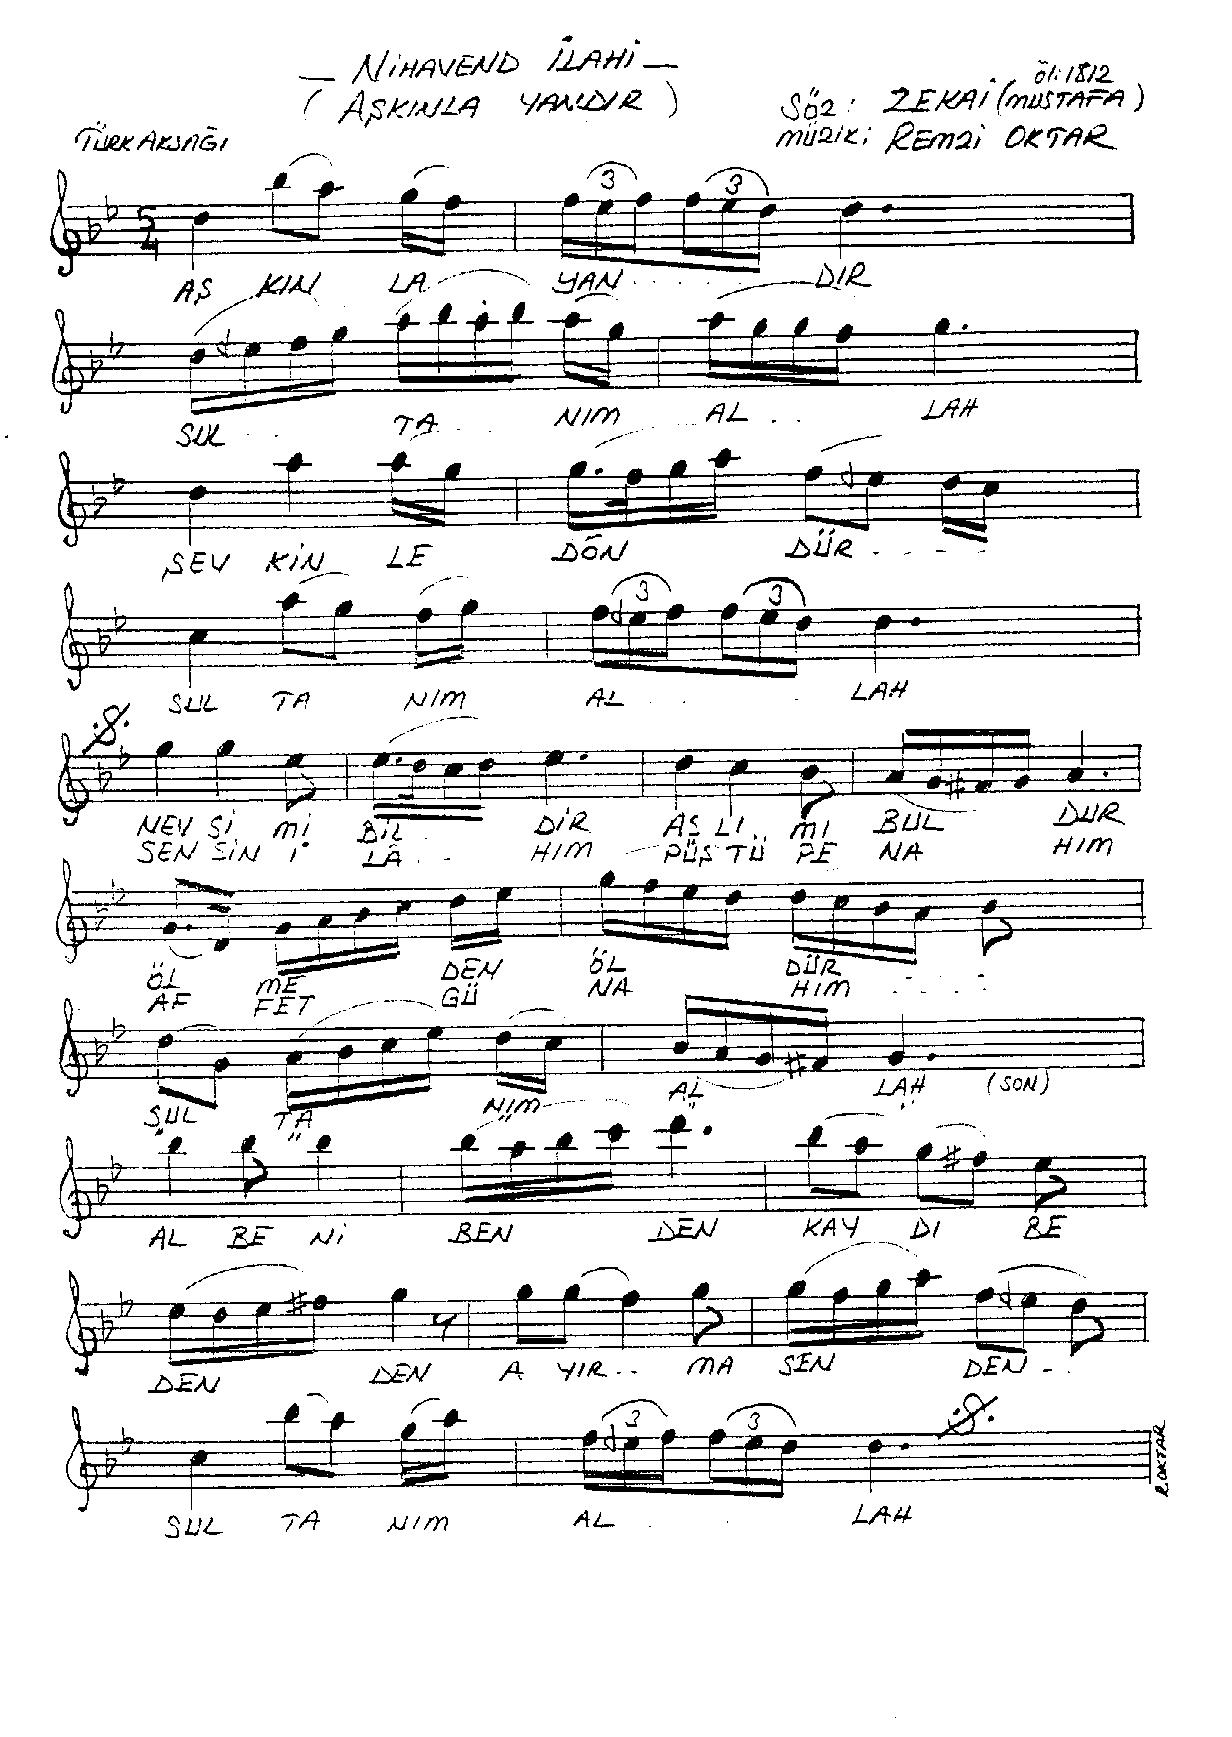 — NİHAVEND İLAHİ —
( AŞKINLA YANDIR )
öl: 1812
SÖZ : ZEKAİ (MUSTAFA)
TÜRK AKSAĞI
MÜZİK: REMZİ OKTAR
5/4
3 3
AŞ KIN LA YAN . . . . . DIR
SUL . . . TA NIM AL . . LAH
ŞEV KİN LE DÖN DÜR . - - - -
3 3
SUL TA NIM AL . . . LAH
NEV Şİ Mİ BİL . DİR AS LI . MI BUL DUR
SEN SİN İ LÂ . . . HIM PÜŞ TÜ PE NA HIM
ÖL ME DEN ÖL DÜR
AF FET GÜ NA HIM . . . .
SUL TA NIM AL LAH (SON)
AL BE Nİ BEN DEN KAY DI BE
DEN DEN A YIR . . MA SEN DEN - .
3 3
SUL TA NIM AL . . LAH
R. OKTAR